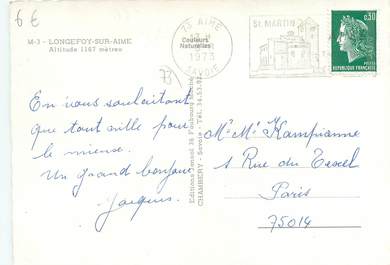 6€
M-3 - LONGEFOY-SUR-AIME
Altitude 1167 mètres
Couleurs
Naturelles
73 AIME
1973
SAVOIE
St MARTIN
0,30
POSTES
REPUBLIQUE FRANÇAISE
73
En vous souhaitant
que tout aille pour
le mieux.
Un grand bonjour
Jacques.
CHAMBERY - Savoie - Tél. 34.53.92
Mr Me Kampianne
1 Rue du Texel
Paris
75014